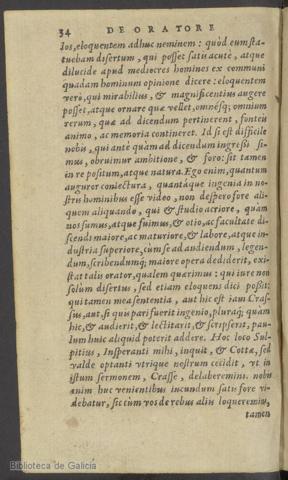 34 DE ORATORE
los, eloquentem adhuc neminem: quòd eum sta-
tuebam disertum, qui posset satis acutè, atque
dilucidè apud mediocres homines ex communi
quadam hominum opinione dicere: eloquentem
verò, qui mirabilius, & magnificentius augere
posset, atque ornare quæ vellet, omnésq; omnium
rerum, quæ ad dicendum pertinerent, fonteis
animo, ac memoria contineret. Id si est difficile
nobis, qui antè quàm ad dicendum ingressi si-
mus, obruimur ambitione, & foro: sit tamen
in re positum, atque natura. Ego enim, quantum
auguror coniectura, quantáque ingenia in no-
stris hominibus esse video, non despero fore ali-
quem aliquando, qui & studio acriore, quàm
nos sumus, atque fuimus, & otio, ac facultate di-
scendi maiore, ac maturiore, & labore, atque in-
dustria superiore, cùm se ad audiendum, legen-
dum, scribendúmq; maiore opera dediderit, exi-
stat talis orator, qualem quærimus: qui iure non
solùm disertus, sed etiam eloquens dici possit:
qui tamen mea sententia, aut hic est iam Cras-
sus, aut si quis pari fuerit ingenio, pluráq; quàm
hic, & audierit, & lectitarit, & scripserit, pau-
lum huic aliquid poterit addere. Hoc loco Sul-
pitius, Insperanti mihi, inquit, & Cottæ, sed
valde optanti vtrique nostrum cecidit, vt in
istum sermonem, Crasse, delaberemini. nobis
enim huc venientibus iucundum satis fore vi-
debatur, si cùm vos de rebus aliis loqueremini,
tamen
Biblioteca de Galicia